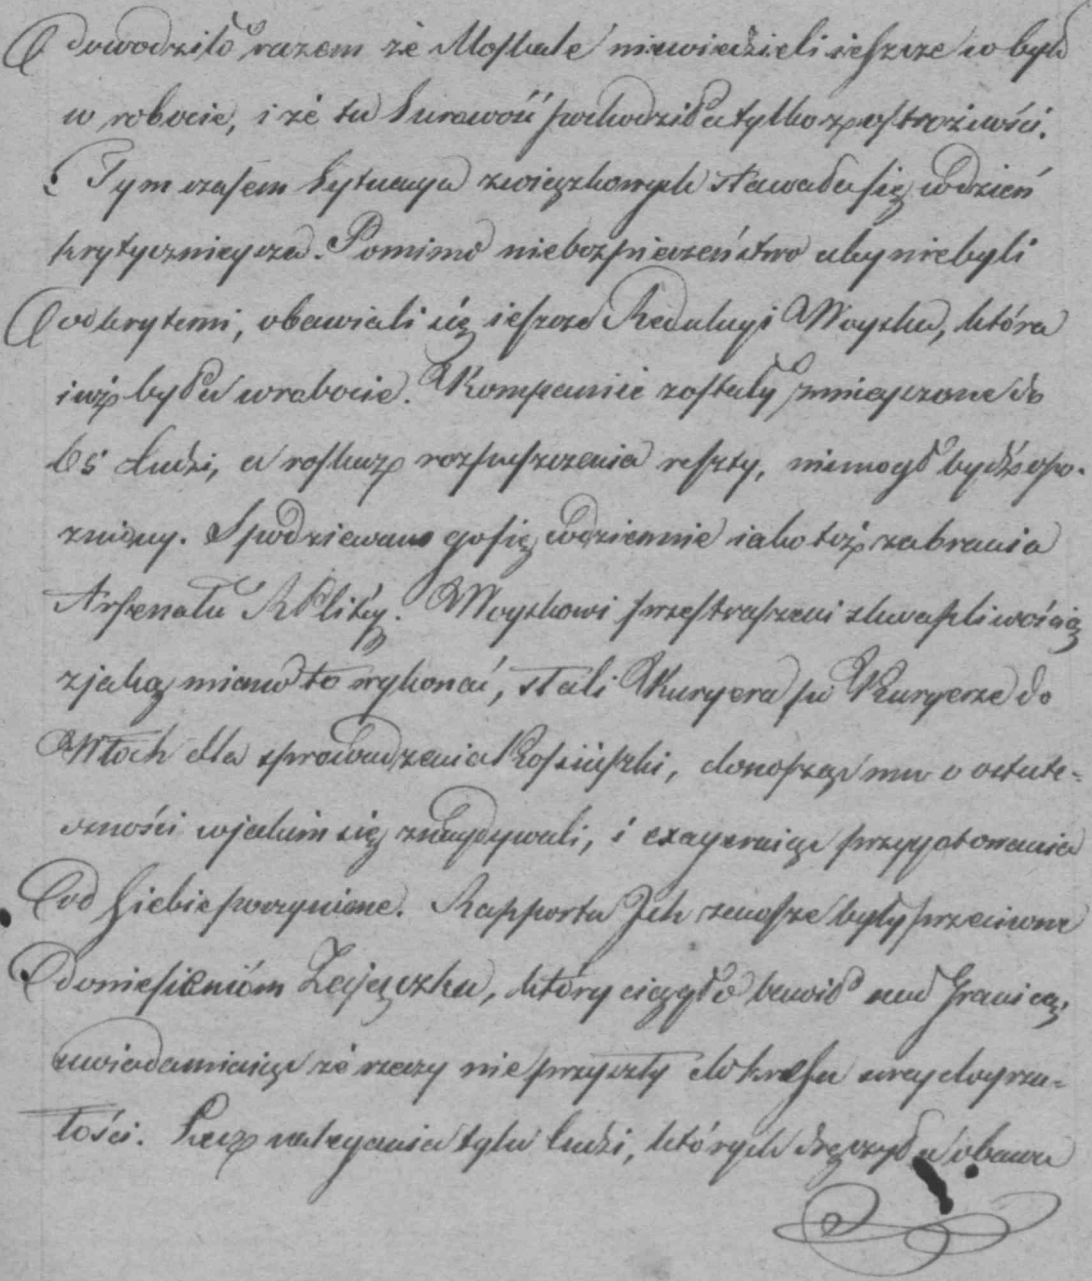 dowodziło razem że Moskale niewiedzieli ieszcze co było
w robocie, i że ta surowość pochodziła tylko z ostrożności.
Tym czasem Sytuacya związkowych stawała się codzień
krytycznieysza. Pomimo niebezpieczeństwo aby nie byli
odkrytemi, obawiali się ieszcze Redukcyi Woyska, która
iuż była w robocie. Kompanie zostały zmnieyszone do
65 Ludzi, a roskaz rozpuszczenia reszty, niemogł bydź opo-
zniony. Spodziewano go się codziennie iako też zabrania
Arsenału RPlitéy. Woyskowi przestraszeni skwapliwością
z jaką miano to wykonać, słali Kuryera po Kuryerze do
Włoch dla sprowadzenia Kosciuszki, donosząc mu o ostate-
czności w jakim się znaydywali, i exageruiąc przygotowania
od siebie poczynione. Rapporta Ich zawsze były przeciwne
doniesieniom Zajączka, który ciągło bawił nad Granicą,
uwiadamiaiąc że rzeczy nie przyszły do kresu swey doyrza-
łości. Lecz nalegania tylu ludzi, których dręczyła obawa